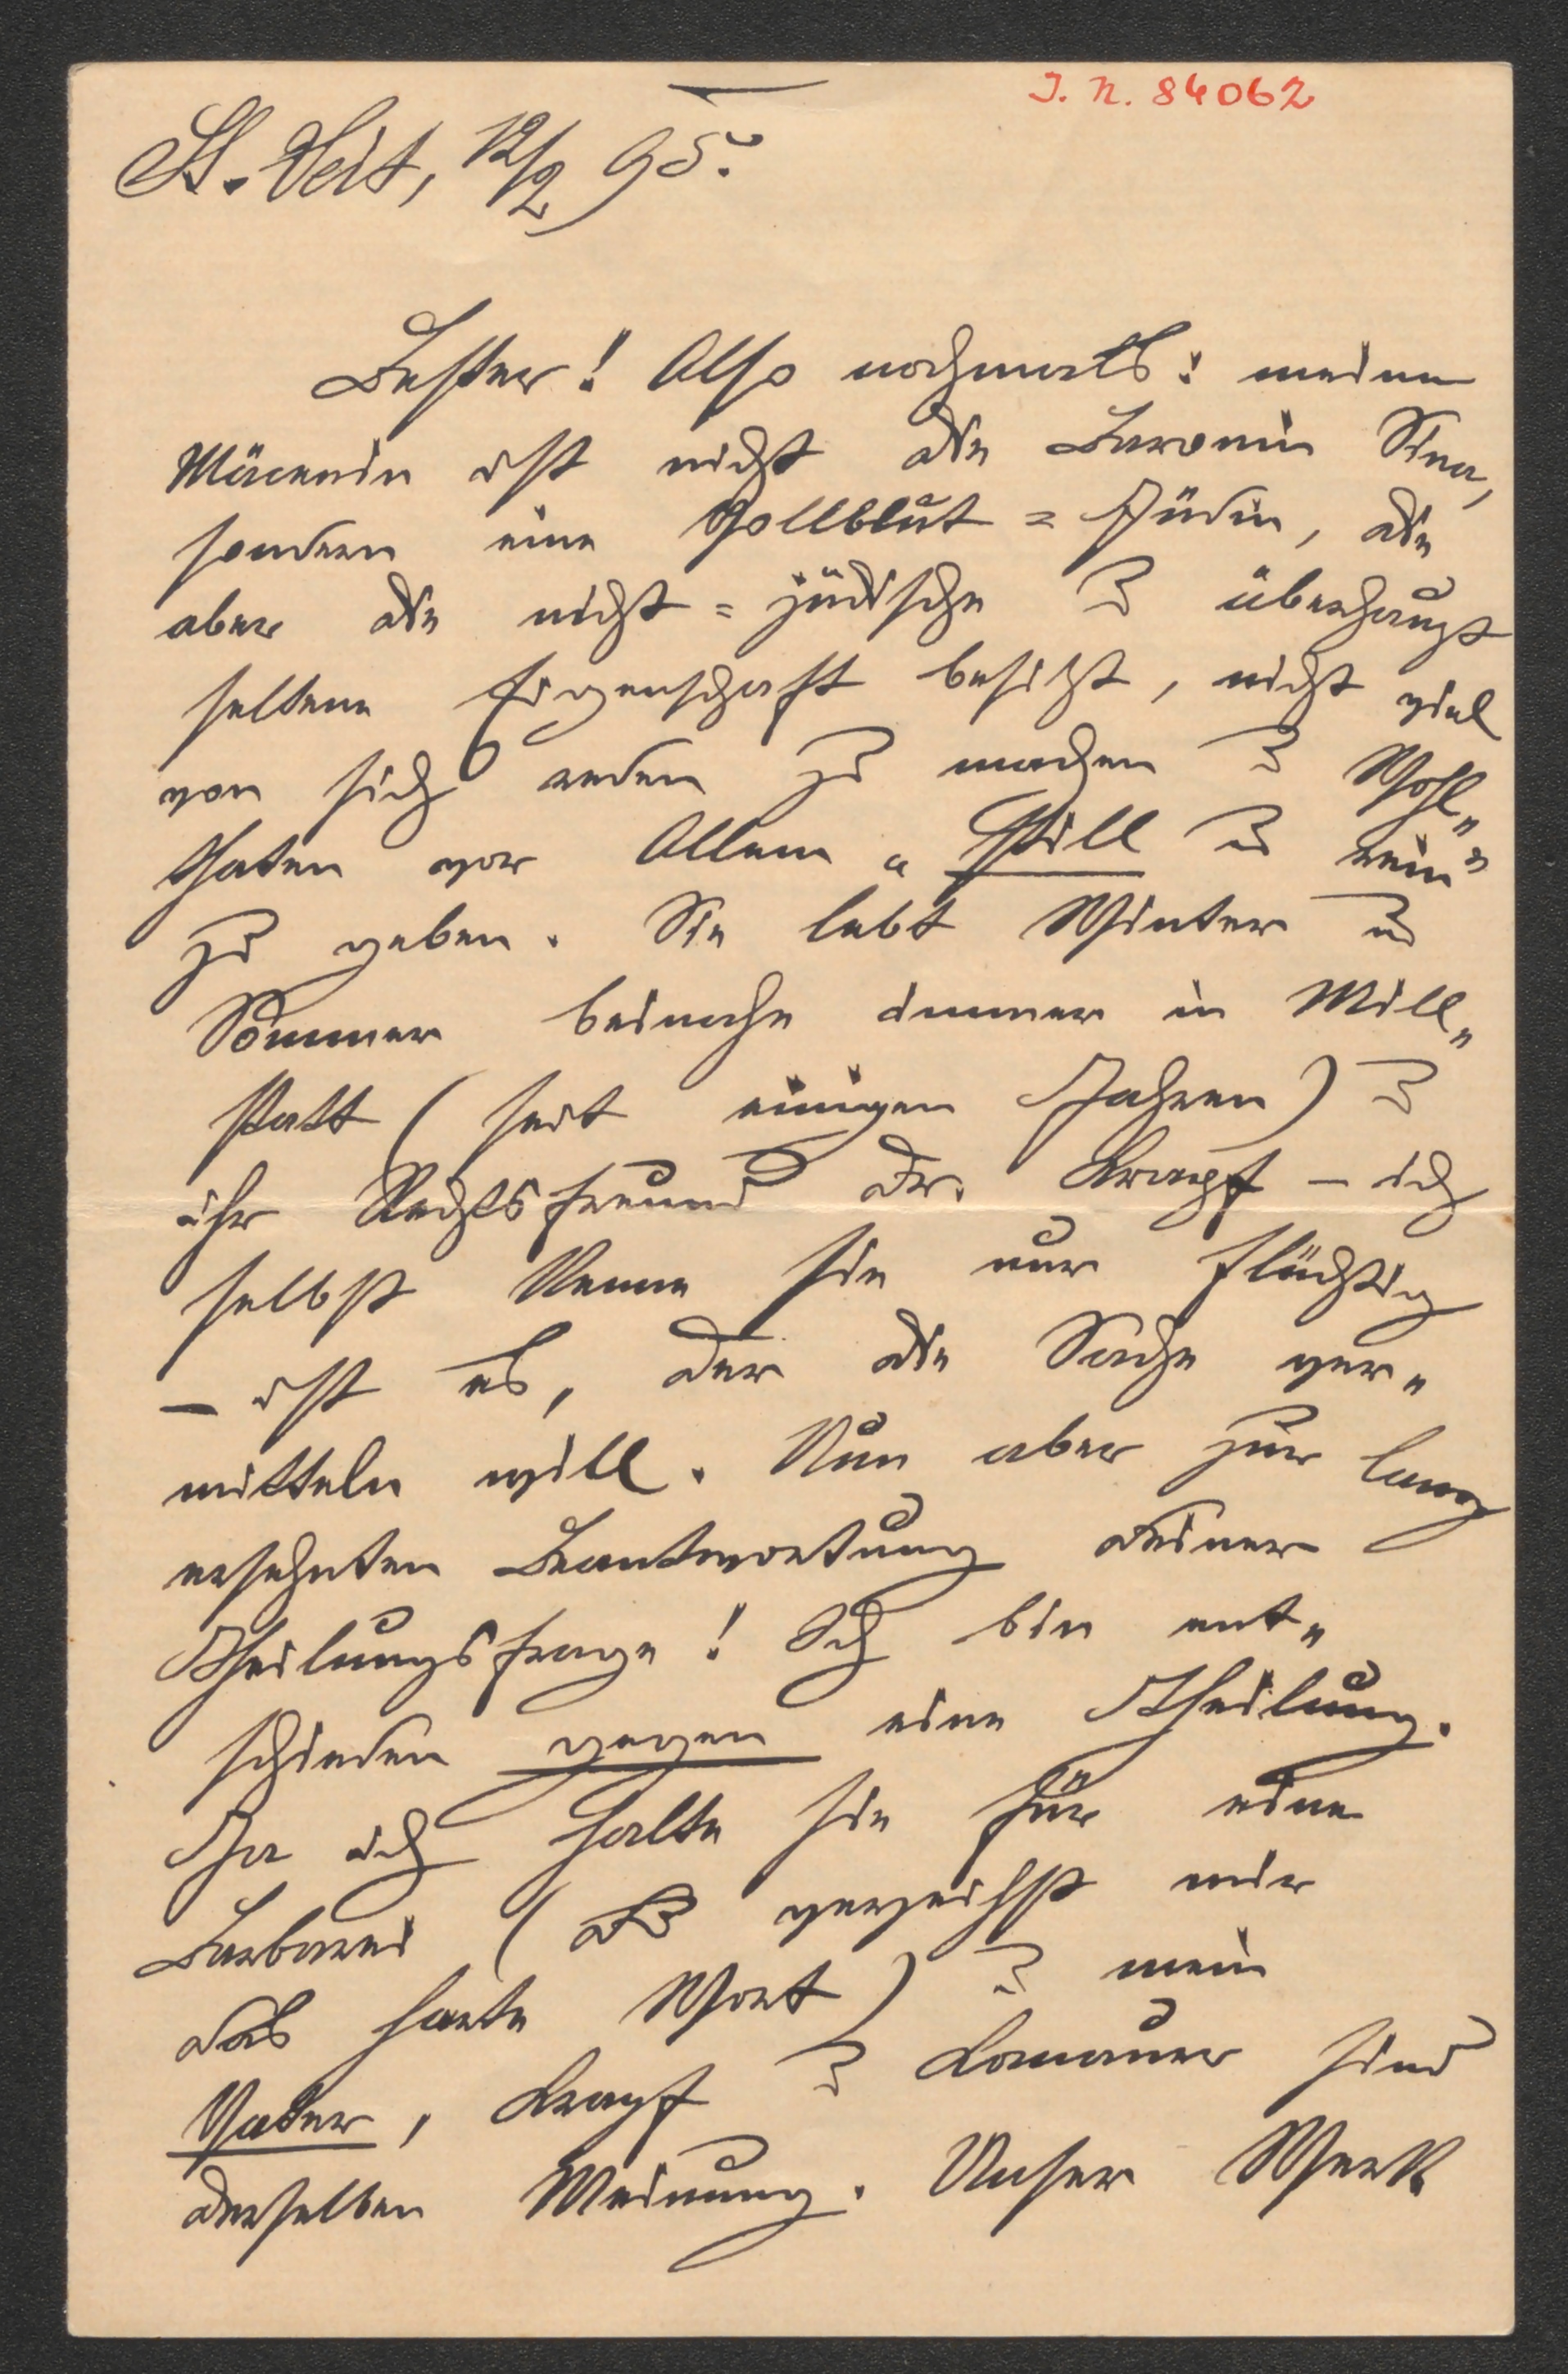 J. N. 84062
St. Veit, 12/2 95.
Bester! Also nochmals: meine
Mäcenin ist nicht die Baronin Sina,
sondern eine Vollblut=Jüdin, die
aber die nicht=jüdische u überhaupt
seltene Eigenschaft besitzt, nicht viel
von sich reden zu machen u Wohl„
thaten vor Allem „still u rein“
zu geben. Sie lebt Winter u
Sommer beinahe immer in Mill„
statt (seit einigen Jahren) u
ihr Rechtsfreund Dr. Krapf – ich
selbst kenne sie nur flüchtig
– ist es, der die Sache ver„
mitteln will. Nun aber zur lang
ersehnten Beantwortung Deiner
Theilungsfrage! Ich bin ent„
schieden gegen eine Theilung.
Ja ich halte sie für eine
Barbarei (Du verzeihst mir
das harte Wort) u mein
Vater, Krapf u sind
derselben Meinung. Unser Werk